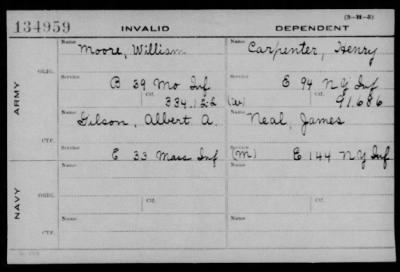 (3-311-3)
134959 INVALID DEPENDENT
Name Moore, William Name Carpenter, Henry
ORIG. Service B 39 Mo Inf Service E 94 N Y Inf
ARMY Ctf. 334.122 (W) Ctf. 91.686
Name Gilson, Albert A. Name Neal, James
CTF. Service E 33 Mass Inf (M) Service E 144 N Y Inf
Name Name
NAVY ORIG. Service Ctf. Service Ctf.
Name Name
CTF. Service Service